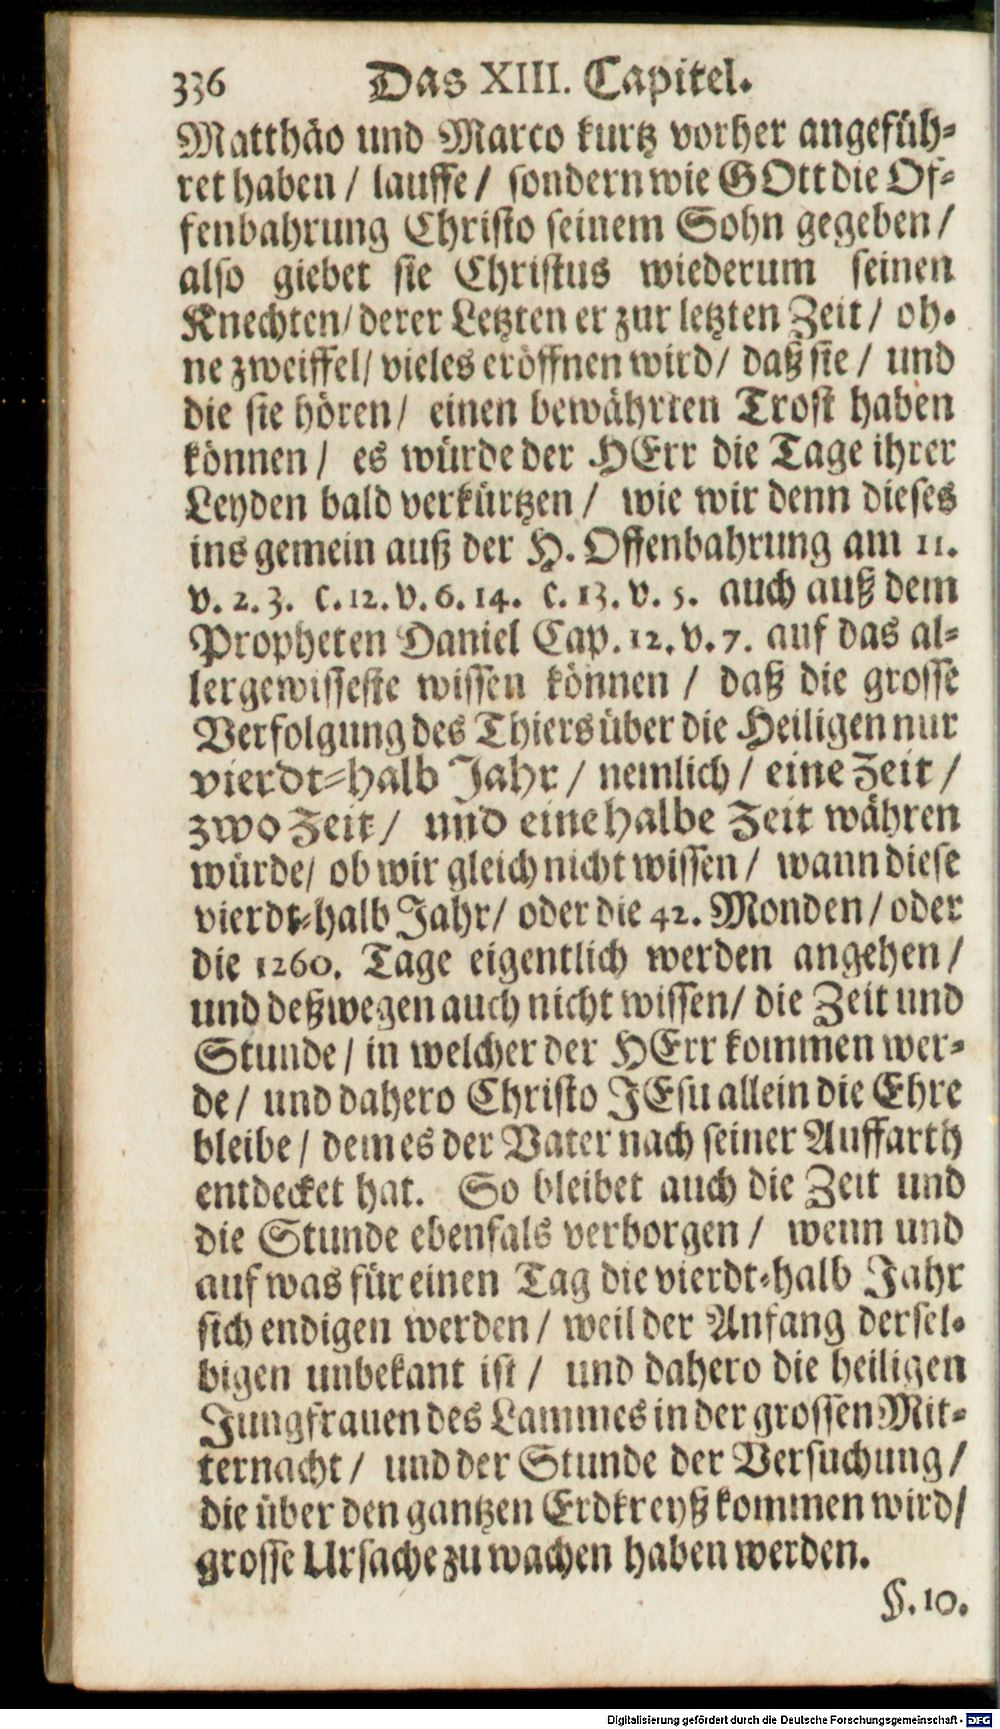 336 Das XIII. Capitel.
Matthäo und Marco kurtz vorher angefüh-
ret haben / lauffe / sondern wie GOtt die Of-
fenbahrung Christo seinem Sohn gegeben /
also giebet sie Christus wiederum seinen
Knechten / derer Letzten er zur letzten Zeit / oh-
ne zweiffel / vieles eröffnen wird / daß sie / und
die sie hören / einen bewährten Trost haben
können / es würde der HErr die Tage ihrer
Leyden bald verkürtzen / wie wir denn dieses
ins gemein auß der H. Offenbahrung am 11.
v. 2. 3. c. 12. v. 6. 14. c. 13. v. 5. auch auß dem
Propheten Daniel Cap. 12. v. 7. auf das al-
lergewisseste wissen können / daß die grosse
Verfolgung des Thiers über die Heiligen nur
vierdt-halb Jahr / nemlich / eine Zeit /
zwo Zeit / und eine halbe Zeit währen
würde / ob wir gleich nicht wissen / wann diese
vierdt-halb Jahr / oder die 42. Monden / oder
die 1260. Tage eigentlich werden angehen /
und deßwegen auch nicht wissen / die Zeit und
Stunde / in welcher der HErr kommen wer-
de / und dahero Christo JEsu allein die Ehre
bleibe / dem es der Vater nach seiner Auffarth
entdecket hat. So bleibet auch die Zeit und
die Stunde ebenfals verborgen / wenn und
auf was für einen Tag die vierdt-halb Jahr
sich endigen werden / weil der Anfang dersel-
bigen unbekant ist / und dahero die heiligen
Jungfrauen des Lammes in der grossen Mit-
ternacht / und der Stunde der Versuchung /
die über den gantzen Erdkreyß kommen wird /
grosse Ursache zu wachen haben werden.
§. 10.
Digitalisierung gefördert durch die Deutsche Forschungsgemeinschaft - DFG